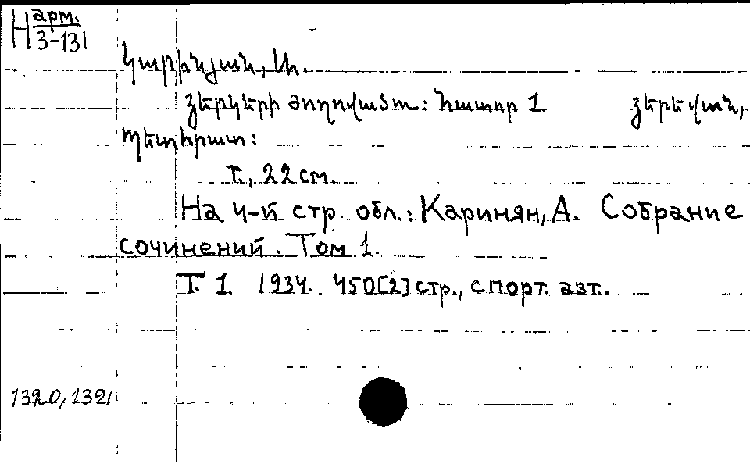 Н арм.
3-131
Կարինյան, Ա.
Երկերի ժողովածու: Հատոր 1 Երեվան,
Պետհրատ:
т., 22 см.
На 4-й стр. обл.: Каринян, А. Собрание
сочинений. Том 1.
Т. 1 1934. 450[2] стр., с порт. авт.
1320, 1321